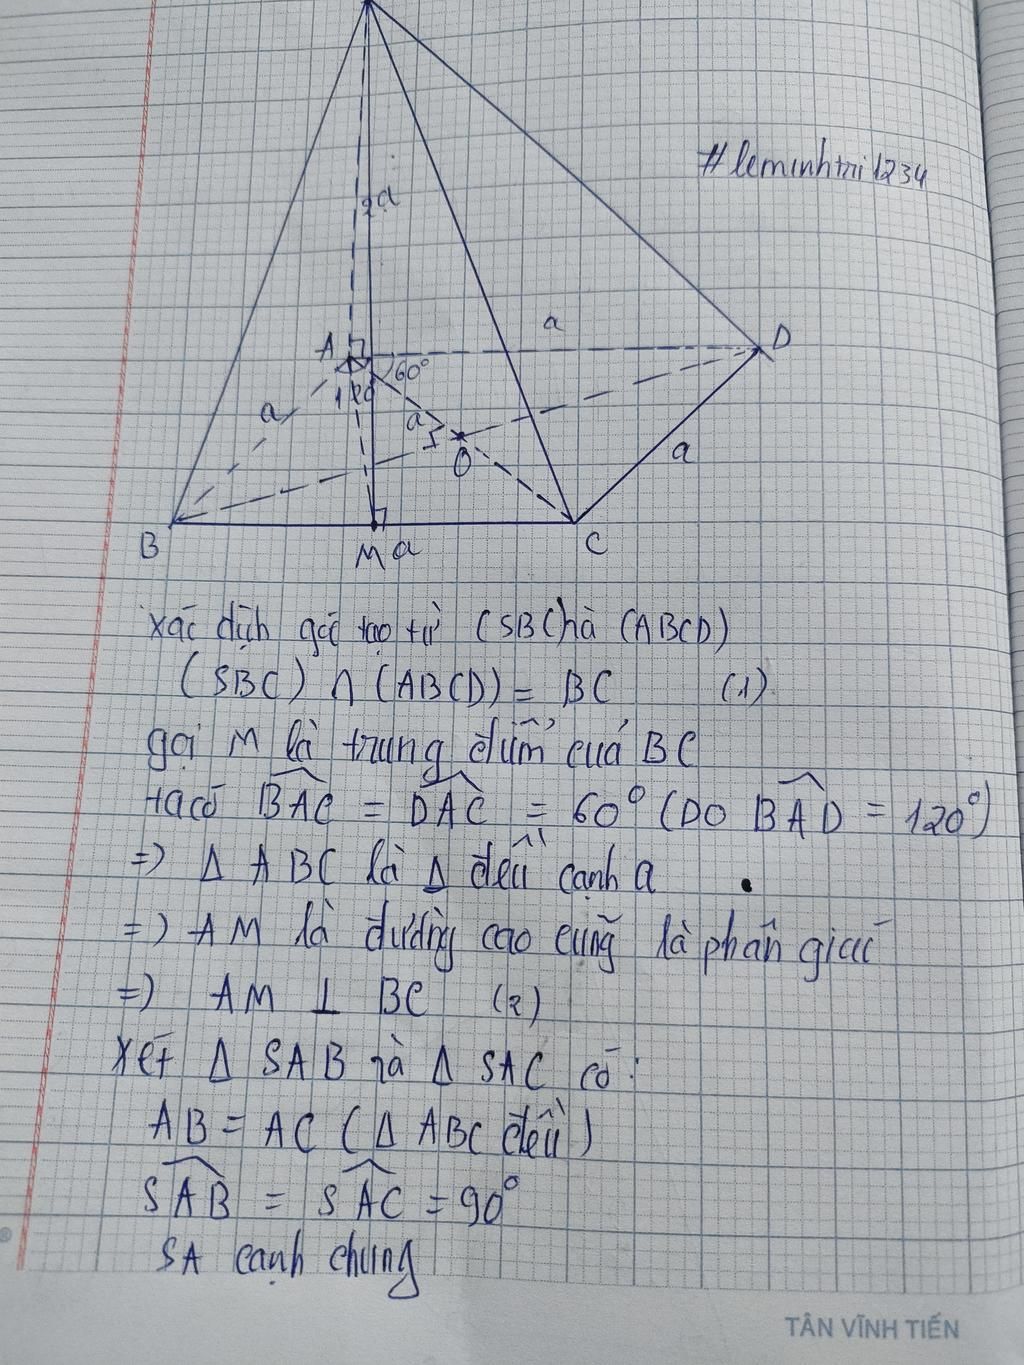 #leminhtri1234
2a
a
A
60°
D
a
a
a
O
B
M a
C
xác định góc tạo từ (SBC) và (ABCD)
(SBC) ∩ (ABCD) = BC (1)
gọi M là trung điểm của BC
ta có BAC = DAC = 60° (DO BAD = 120°)
=> Δ ABC là Δ đều cạnh a
=> AM là đường cao cũng là phân giác
=> AM ⊥ BC (2)
xét Δ SAB và Δ SAC có:
AB = AC (Δ ABC đều)
SAB = SAC = 90°
SA cạnh chung
TÂN VĨNH TIẾN